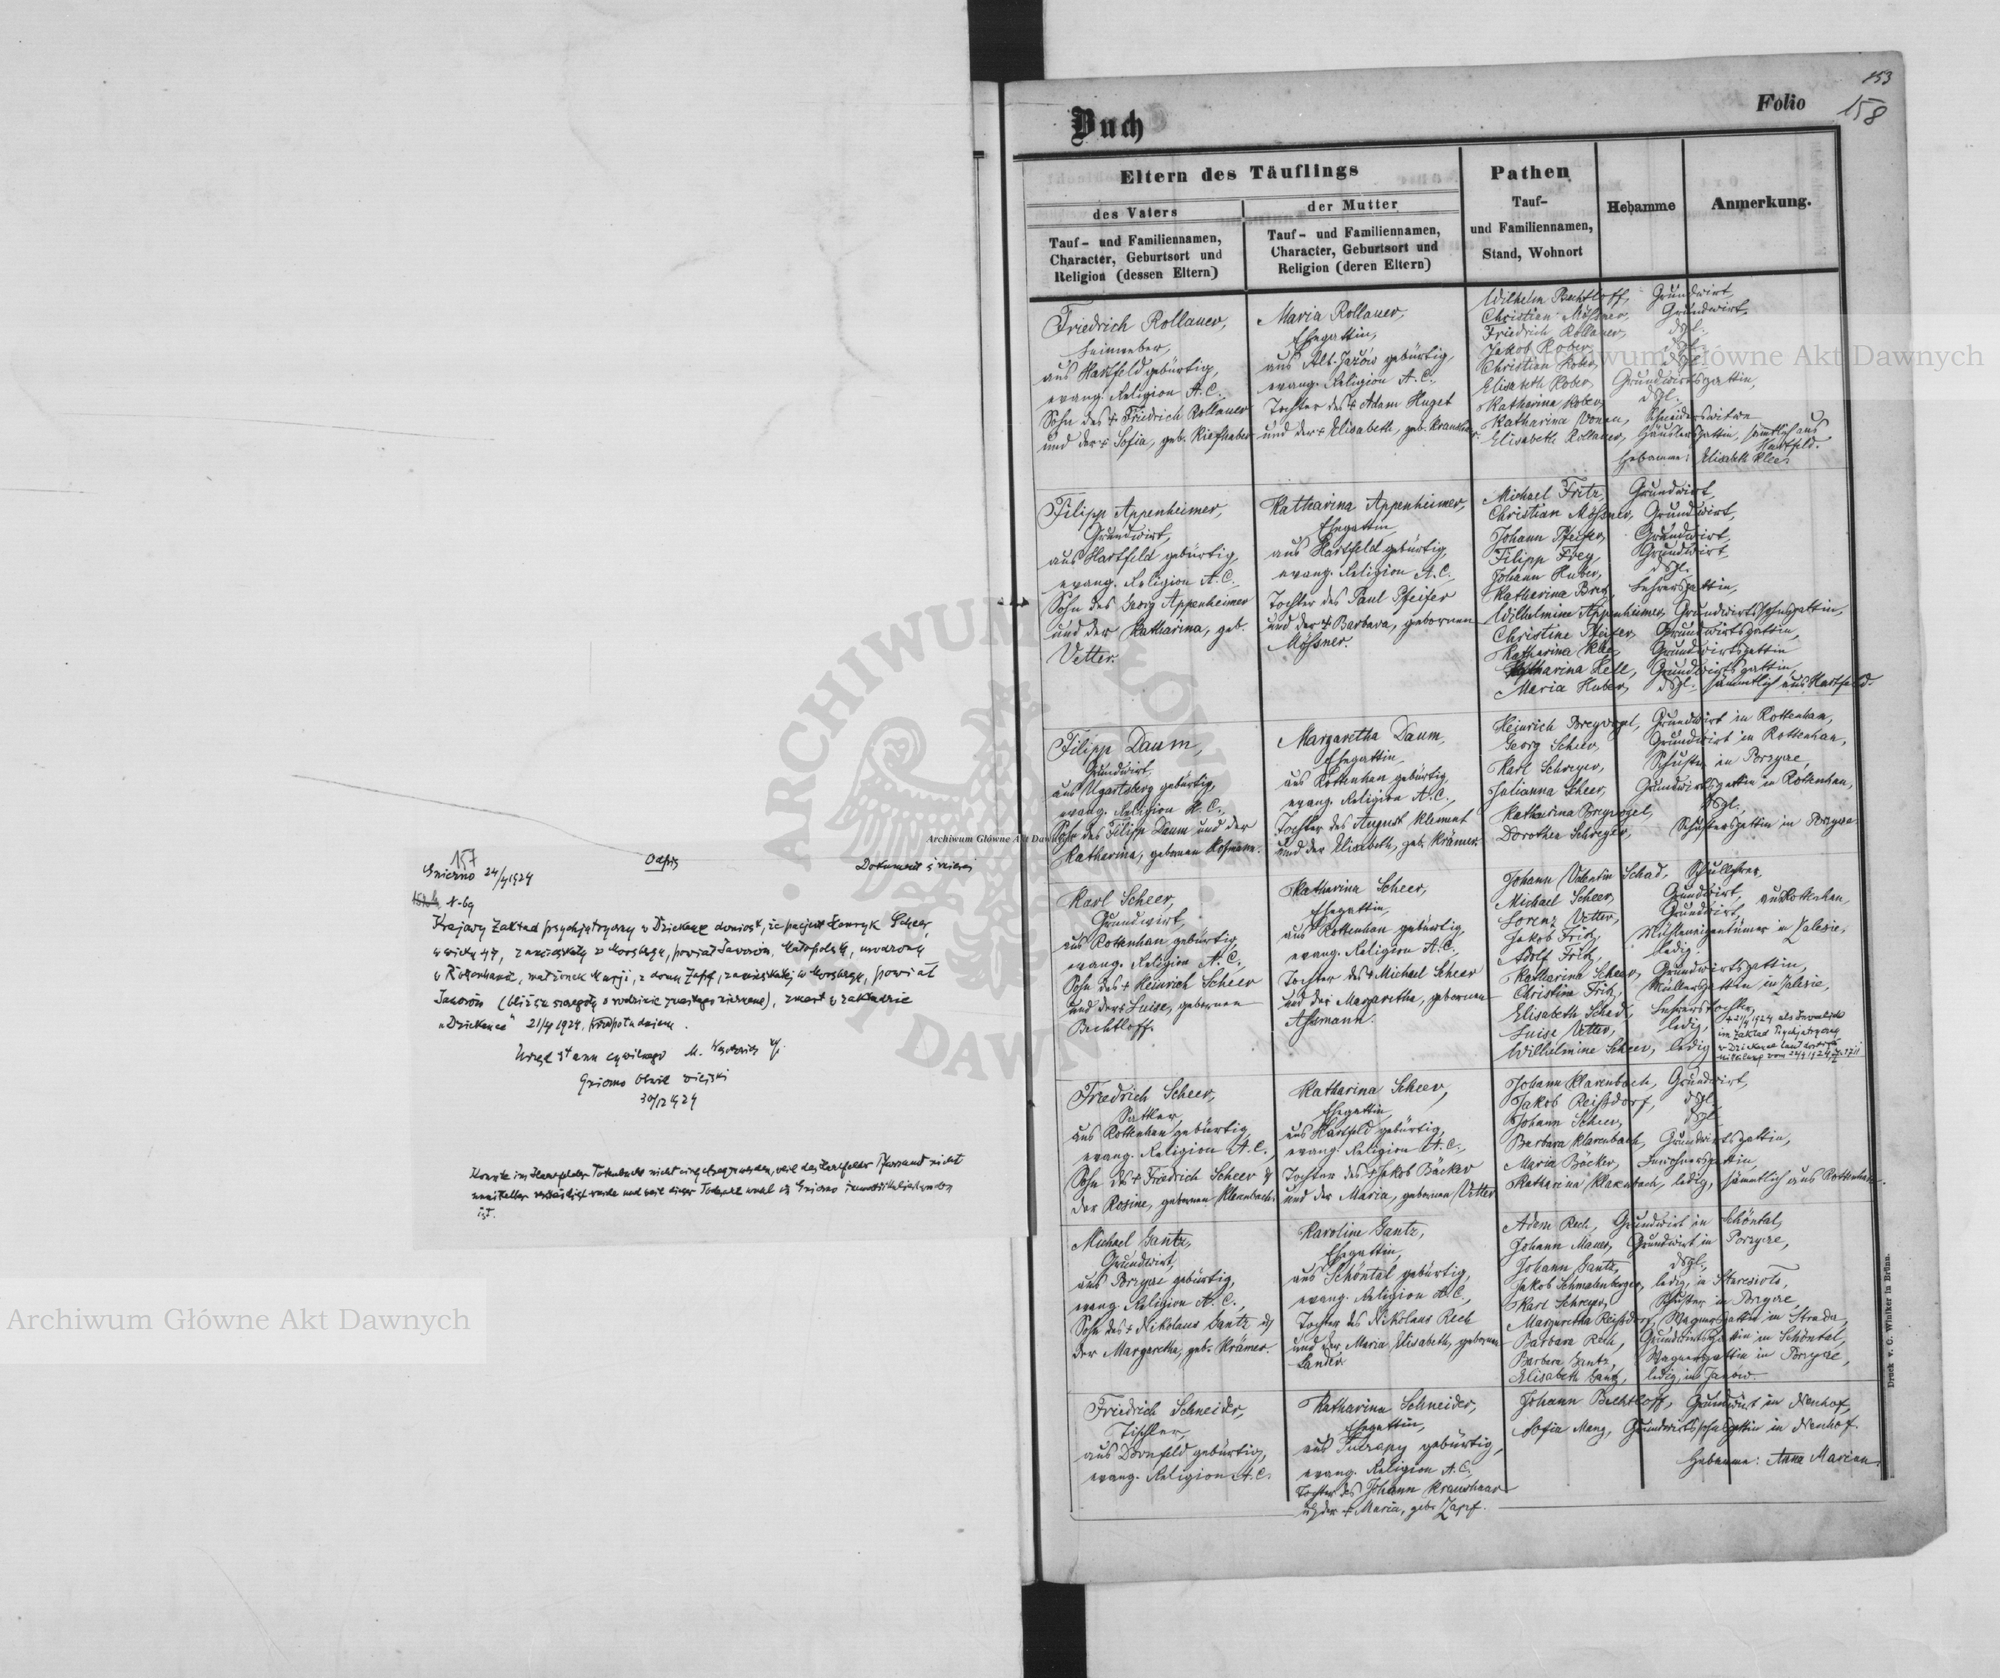 153
Folio 158
Buch
Eltern des Täuflings
Pathen
Hebamme
Anmerkung.
des Vaters
der Mutter
Tauf-
und Familiennamen,
Stand, Wohnort
Tauf- und Familiennamen,
Character, Geburtsort und
Religion (dessen Eltern)
Tauf- und Familiennamen,
Character, Geburtsort und
Religion (deren Eltern)
Friedrich Rollauer,
Leinweber,
aus Hartfeld gebürtig,
evang. Religion A. C.
Sohn des + Friedrich Rollauer
und der + Sofia, geb. Riefhaber
Maria Rollauer,
Ehegattin,
aus Alt-Jazów gebürtig,
evang. Religion A. C.,
Tochter des + Adam Huget
und der + Elisabeth, geb.
Wilhelm Bechtloff, Grundwirt,
Christian Mößner, Grundwirt,
Friedrich Rollauer, dsgl.
Jakob Kober, dsgl.
Christian Kober, dsgl.
Elisabeth Kober, Grundwirtsgattin,
Katharina Kober, dsgl.
Katharina Vonau, Schneiderswitwe
Elisabeth Rollauer, Häuslersgattin, sämtlich aus
Hartfeld.
Hebamme: Elisabeth Klee.
Filipp Appenheimer,
Grundwirt,
aus Hartfeld gebürtig,
evang. Religion A. C.
Sohn des Georg Appenheimer
und der Katharina, geb.
Vetter.
Katharina Appenheimer,
Ehegattin,
aus Hartfeld gebürtig,
evang. Religion A. C.,
Tochter des Paul Pfeifer
und der + Barbara, gebornen
Mößner.
Michael Fritz, Grundwirt,
Christian Mößner, Grundwirt,
Johann Pfeifer, Grundwirt,
Filipp Frey, Grundwirt,
Johann Huber, dsgl.
Katharina Lehrersgattin,
Wilhelmine Appenheimer, Grundwirtssohnsgattin,
Christine Pfeifer, Grundwirtsgattin,
Katharina Klee, Grundwirtsgattin
Katharina Hell, Grundwirtsgattin,
Maria Huber, dsgl. sämmtlich aus Hartfeld.
Filipp Daum,
Grundwirt,
aus Ugartsberg gebürtig,
evang. Religion A. C.,
Sohn des Filipp Daum und der
Katharina, gebornen Hofmann.
Margaretha Daum,
Ehegattin,
aus Rottenhan gebürtig,
evang. Religion A. C.,
Tochter des August Klement
und der Elisabeth, geb. Krämer.
Heinrich Breyvogel, Grundwirt in Rottenhan,
Georg Scheer, Grundwirt in Rottenhan,
Karl Schreyer, Schuster in Porzyce,
Julianna Scheer, Grundwirtsgattin in Rottenhan,
Katharina Breyvogel, dsgl.
Dorothea Schreyer, Schustersgattin in Porzyce
Karl Scheer,
Grundwirt,
aus Rottenhan gebürtig,
evang. Religion A. C.,
Sohn des + Heinrich Scheer
und der + Luise, gebornen
Bechtloff.
Katharina Scheer,
Ehegattin,
aus Rottenhan gebürtig,
evang. Religion A. C.,
Tochter des + Michael Scheer
und der Margaretha, gebornen
Aßmann.
Johann Valentin Schad, Schullehrer,
Michael Scheer, Grundwirt, aus Rottenhan,
Lorenz Vetter, Grundwirt,
Jakob Fritz, Mühleneigentümer in Zalesie,
Adolf Fritz, ledig,
Katharina Scheer, Grundwirtsgattin,
Christine Fritz, Müllersgattin in Zalesie,
Elisabeth Schad, Lehrerstochter,
Luise Vetter, ledig,
Wilhelmine Scheer, ledig
+ 21/4 1924 als Invalide
im Zakład Psychjatryczny
w Dziekance laut
Friedrich Scheer,
Sattler,
aus Rottenhan gebürtig,
evang. Religion A. C.
Sohn des + Friedrich Scheer u
der Rosine, gebornen Klarenbach.
Katharina Scheer,
Ehegattin,
aus Hartfeld gebürtig,
evang. Religion A. C.,
Tochter des + Jakob Bäcker
und der Maria, gebornen Vetter
Johann Klarenbach, Grundwirt,
Jakob Reißdorf, dsgl.
Johann Scheer, dsgl.
Barbara Klarenbach, Grundwirtsgattin,
Maria Bäcker, Inwohnersgattin,
Katharina Klarenbach, ledig, sämmtlich aus Rottenhan.
Michael Gantz,
Grundwirt,
aus Porzyce gebürtig,
evang. Religion A. C.,
Sohn des + Nikolaus Gantz u
der Margaretha, geb. Krämer.
Karoline Gantz,
Ehegattin,
aus Schöntal gebürtig,
evang. Religion A. C.,
Tochter des Nikolaus Rech
und der Maria Elisabeth, gebornen
Lander
Adam Rech, Grundwirt in Schöntal,
Johann Mauer, Grundwirt in Porzyce,
Johann Gantz, dsgl.,
Jakob Schmalenberger, ledig, in Starzisko,
Karl Schreyer, Schuster in Porzyce,
Margaretha Reißdorf, Wagnersgattin in Strada,
Barbara Rech, Grundwirtsgattin in Schöntal,
Barbara Gantz, Wagnersgattin in Porzyce,
Elisabeth Gantz, ledig, in Jazów.
Friedrich Schneider,
Tischler,
aus Dornfeld gebürtig,
evang. Religion A. C.
Katharina Schneider,
Ehegattin,
aus gebürtig,
evang. Religion A. C.
Tochter des Johann Kraushaar
u der + Maria, geb. Zapf.
Johann Bechtloff, Grundwirt in Neuhof,
Sofia Mang, Grundwirtssohnsgattin in Neuhof.
Hebamme: Anna Marian
Druck v. C. Winiker in Brünn.
157
Gniezno 24/4 1924
Odpis
Dokument
N-69
Krajowy Zakład psychjatryczny w Dziekance doniósł, że pacjent Henryk Scheer,
w wieku 47, zamieszkały w Moosberg, powiat Jaworów, Małopolska, urodzony
w Rottenhanie, małżonek Marji, z domu Zapf, zamieszkałej w Moosbergu, powiat
Jaworów (bliższe szczegóły o rodzinie zmarłego nieznane), zmarł w zakładzie
"Dziekanca" 21/4 1924, przedpołudniem.
Urząd stanu cywilnego M.
Gniezno Obwód wiejski
30/12 1924
Konnte im Hartfelder Totenbuche nicht eingetragen werden, weil das Hartfelder Pfarramt nicht
verständigt wurde und weil dieser Todesfall wohl in Gniezno
ist.
ARCHIWUM GŁÓWNE AKT DAWNYCH
Archiwum Główne Akt Dawnych
Archiwum Główne Akt Dawnych
Archiwum Główne Akt Dawnych